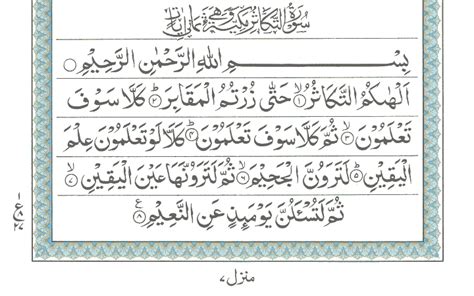 سُوْرَةُ التَّكَاثُرِ مَكِّيَّةٌ وَّهِيَ ثَمَانِيْ اٰيَاتٍ
بِسْمِ اللهِ الرَّحْمٰنِ الرَّحِيْمِ ○
اَلْهٰىكُمُ التَّكَاثُرُ ۙ‏﴿۱﴾ حَتّٰى زُرْتُمُ الْمَقَابِرَ ؕ‏﴿۲﴾ كَلَّا سَوْفَ
تَعْلَمُوْنَ ۙ‏﴿۳﴾ ثُمَّ كَلَّا سَوْفَ تَعْلَمُوْنَ ؕ‏﴿۴﴾ كَلَّا لَوْ تَعْلَمُوْنَ عِلْمَ
الْيَقِيْنِ ؕ‏﴿۵﴾ لَتَرَوُنَّ الْجَحِيْمَ ۙ‏﴿۶﴾ ثُمَّ لَتَرَوُنَّهَا عَيْنَ الْيَقِيْنِ ۙ‏﴿۷﴾
ثُمَّ لَتُسْـَٔلُنَّ يَوْمَئِذٍ عَنِ النَّعِيْمِ ﴿۸﴾
ع
منزل ۷